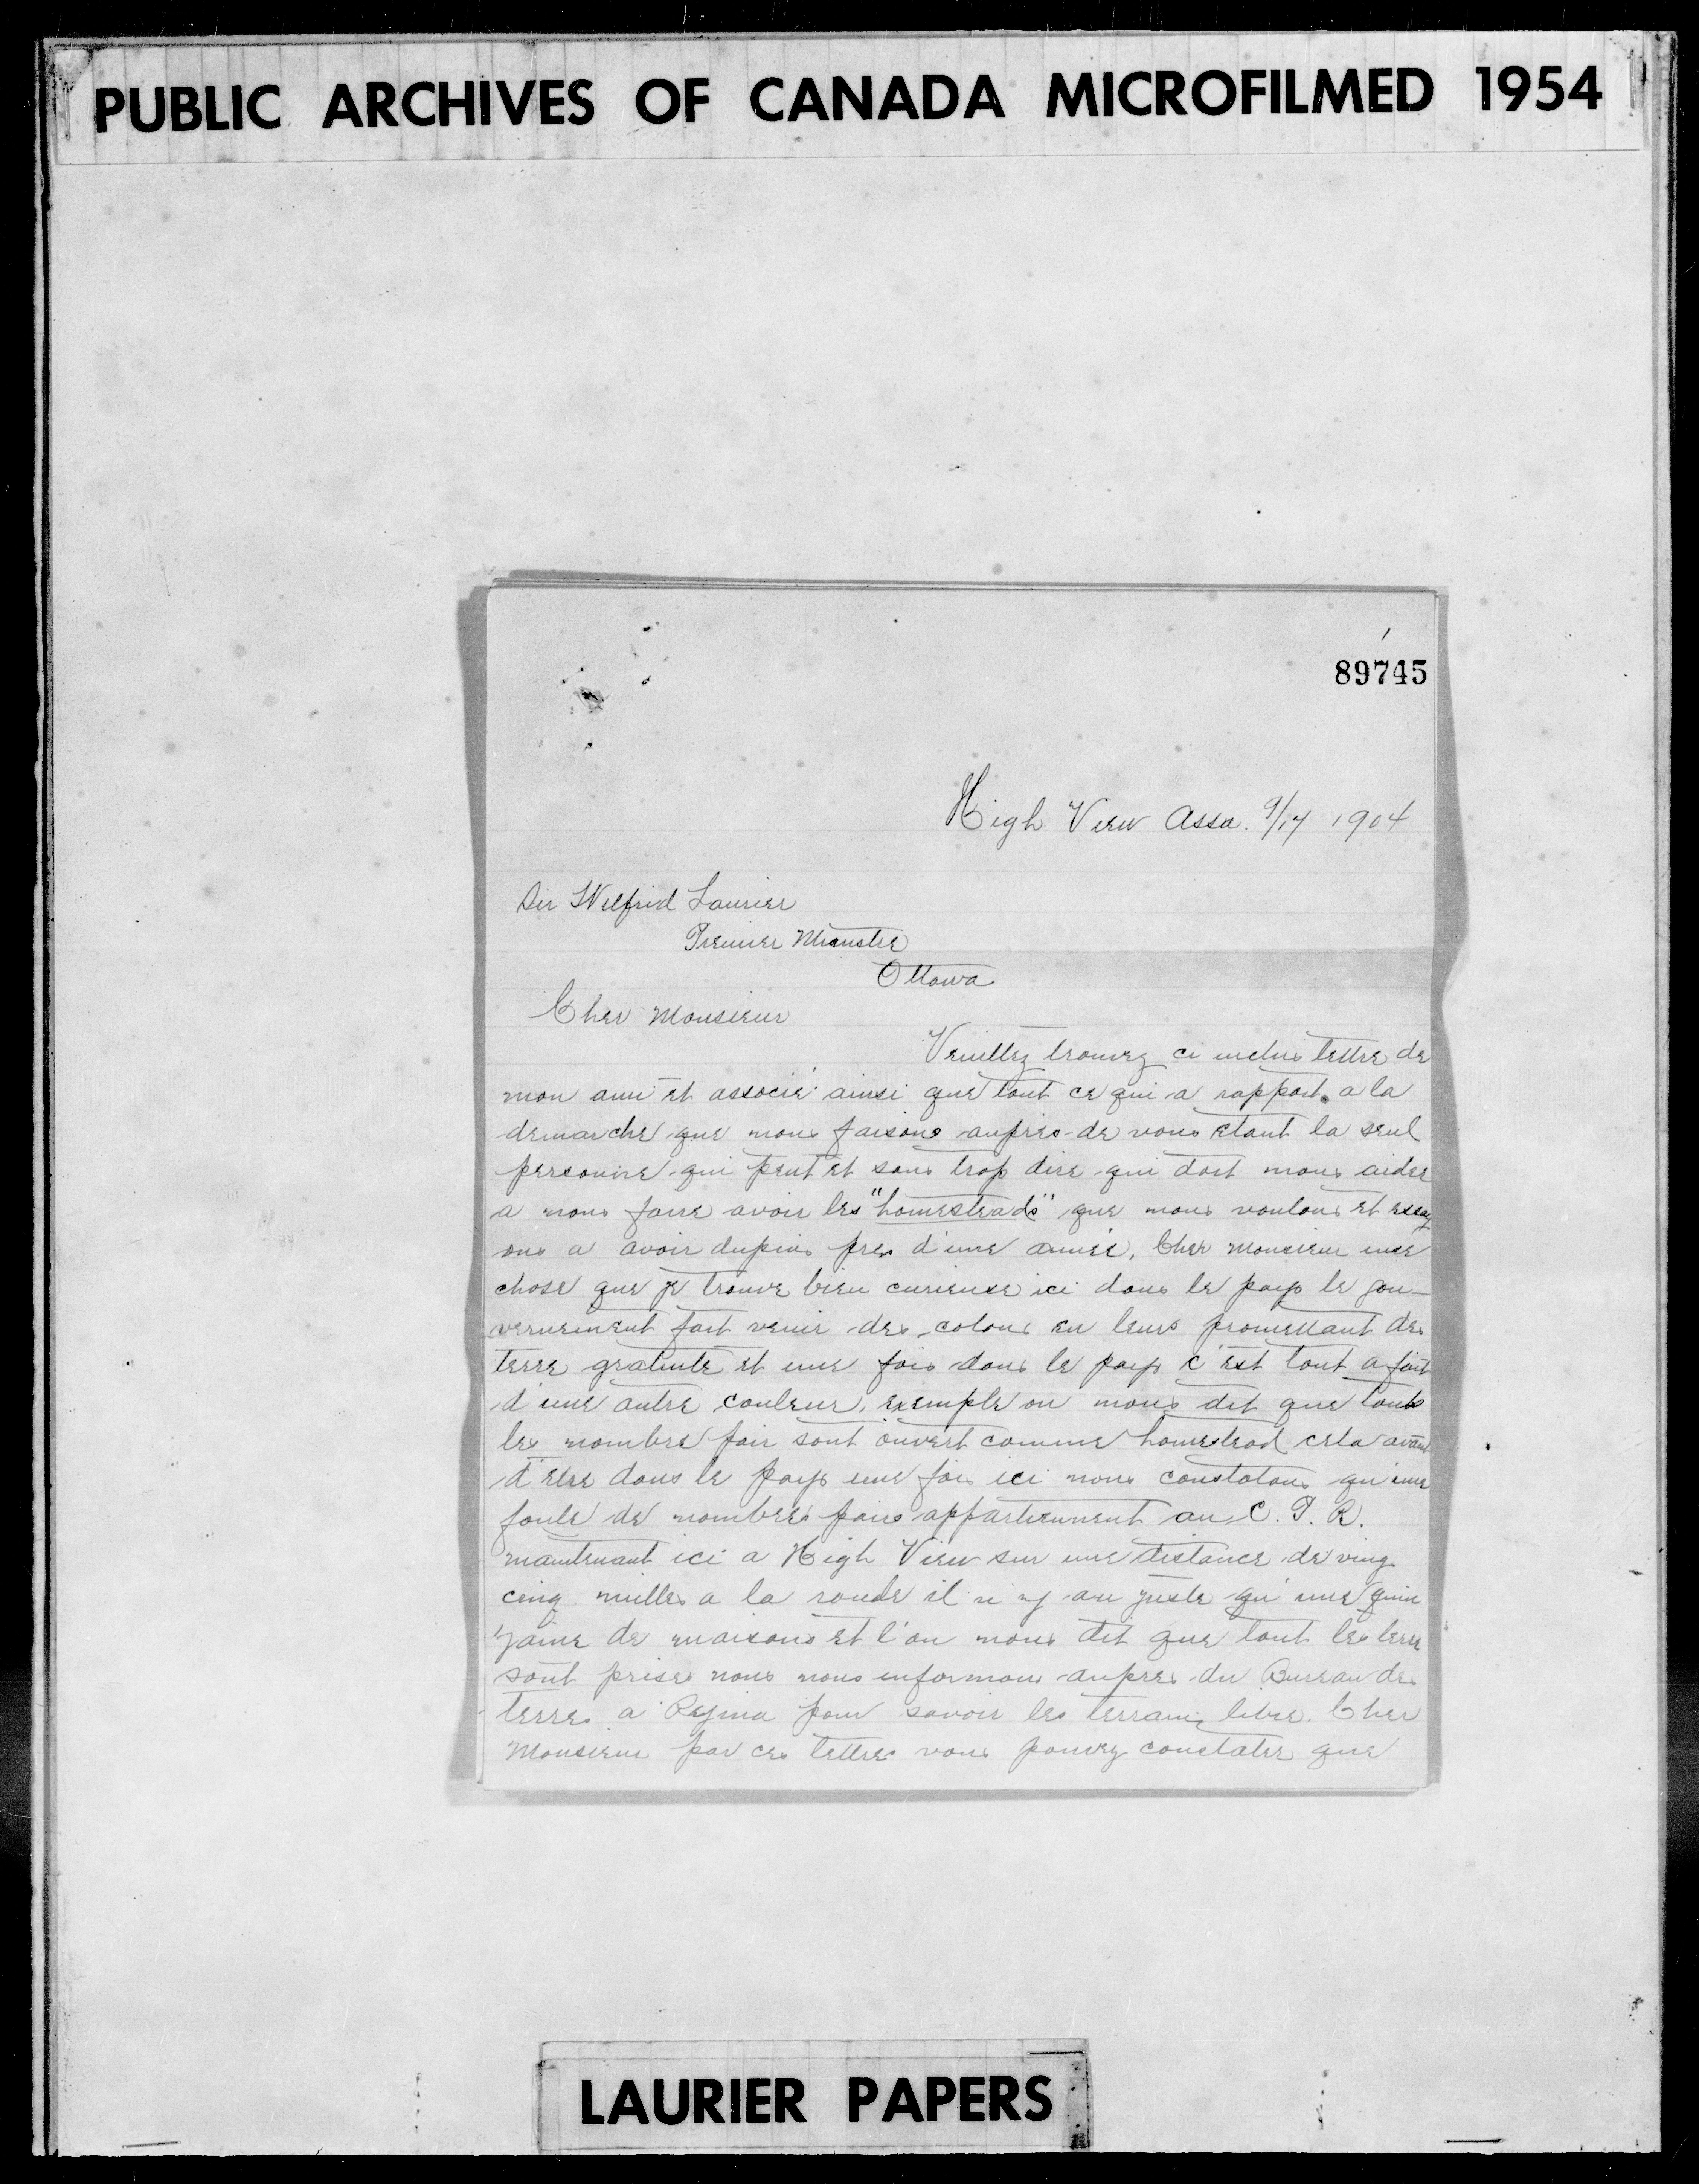 PUBLIC ARCHIVES OF CANADA MICROFILMED 1954
89745
High View Assa. 9/17 1904
Sir Wilfrid Laurier
Premier Minustre
Ottowa
Cher Monsieur
Veuillez trouvez ci inclus lettre de
mon ami et associé ainsi que tout ce qui a rapport a la
demarche que nous faisons aupres de vous etant la seul
personne qui peut et sans trop dire qui doit nous aider
a nous faire avoir les "homesteads" que nous voulons et essay
ons a avoir dupuis pres d'une année. Cher Monsieur une
chose que je trouve bien curieuse ici dans le pays le gou-
vernement fait venir des colons en leurs promettant des
terre gratuite et une fois dans le pays c'est tout a fait
d'une autre couleur, exemple on nous dit que touts
les nombre pair sont ouvert comme homestead cela avant
d'etre dans le pays une fois ici nous constatons qu'une
foule de nombres pairs appartiennent au C. P. R.
maintenant ici a High View sur une distance de ving
cinq milles a la ronde il n y au juste qu'une quin
zaine de maisons et l'on nous dit que tout les terre
sont prises nous nous informons aupres du Bureau des
terres a Regina pour savoir les terrains libre. Cher
Monsieur par ces lettres vous pouvez constater que
LAURIER PAPERS